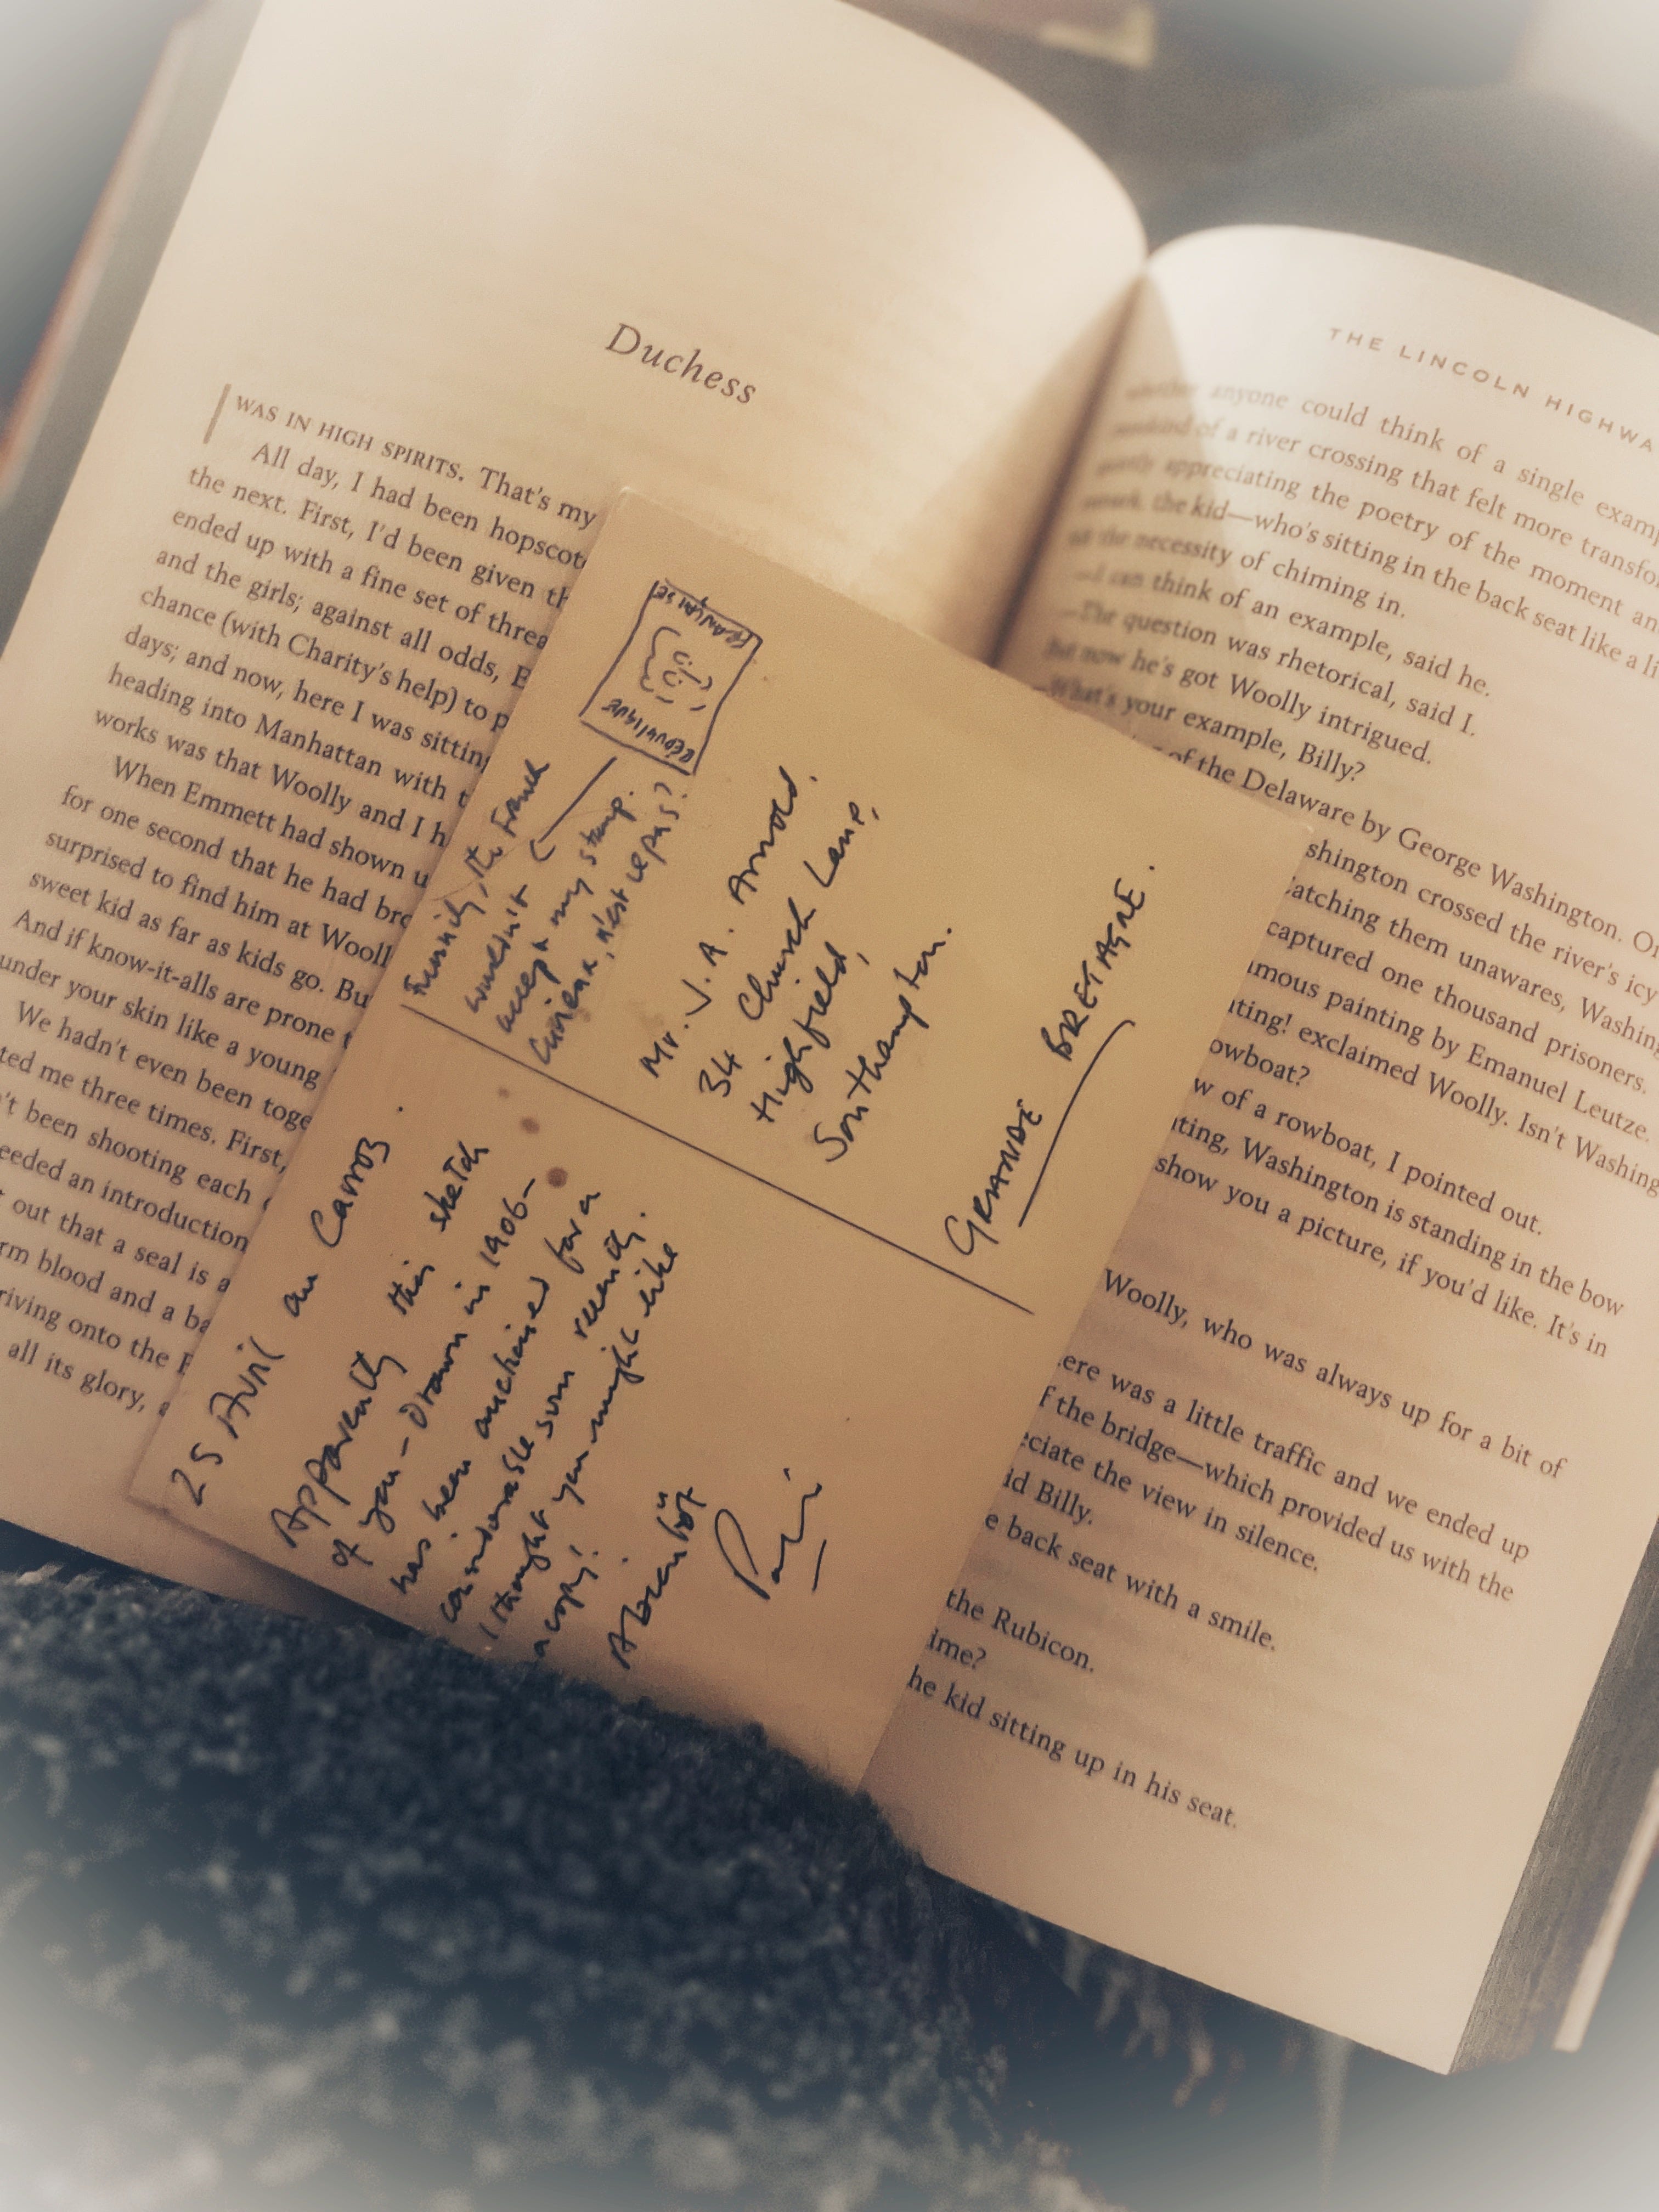 Duchess
WAS IN HIGH SPIRITS. That's my
All day, I had been hopscot
the next. First, I'd been given th
ended up with a fine set of threa
and the girls; against all odds, E
chance (with Charity's help) to p
days; and now, here I was sittin
heading into Manhattan with
works was that Woolly and I h
When Emmett had shown u
for one second that he had bro
surprised to find him at Wooll
sweet kid as far as kids go. Bu
And if know-it-alls are prone t
under your skin like a young
We hadn't even been toge
ted me three times. First,
't been shooting each
eeded an introduction
out that a seal is a
rm blood and a ba
riving onto the
all its glory, a
FRANÇAISE
RÉPUBLIQUE
Funnily, the French
wouldn't
accept my stamp.
Curieux, n'est ce pas?
Mr. J. A. Arnold.
34 Church Lane,
Highfield,
Southampton.
GRANDE BRETAGNE.
25 Avril au Carroz.
Apparently this sketch
of you - drawn in 1906 -
has been auctioned for a
considerable sum recently.
I thought you might like
a copy!
À bientôt
THE LINCOLN HIGHWA
whether anyone could think of a single examp
of a river crossing that felt more transfo
appreciating the poetry of the moment an
the kid—who's sitting in the back seat like a li
the necessity of chiming in.
—I can think of an example, said he.
—The question was rhetorical, said I.
But now he's got Woolly intrigued.
—What's your example, Billy?
of the Delaware by George Washington. On
shington crossed the river's icy
catching them unawares, Washing
captured one thousand prisoners.
amous painting by Emanuel Leutze.
nting! exclaimed Woolly. Isn't Washing
owboat?
w of a rowboat, I pointed out.
nting, Washington is standing in the bow
show you a picture, if you'd like. It's in
Woolly, who was always up for a bit of
ere was a little traffic and we ended up
f the bridge—which provided us with the
eciate the view in silence.
id Billy.
e back seat with a smile.
the Rubicon.
ime?
he kid sitting up in his seat.